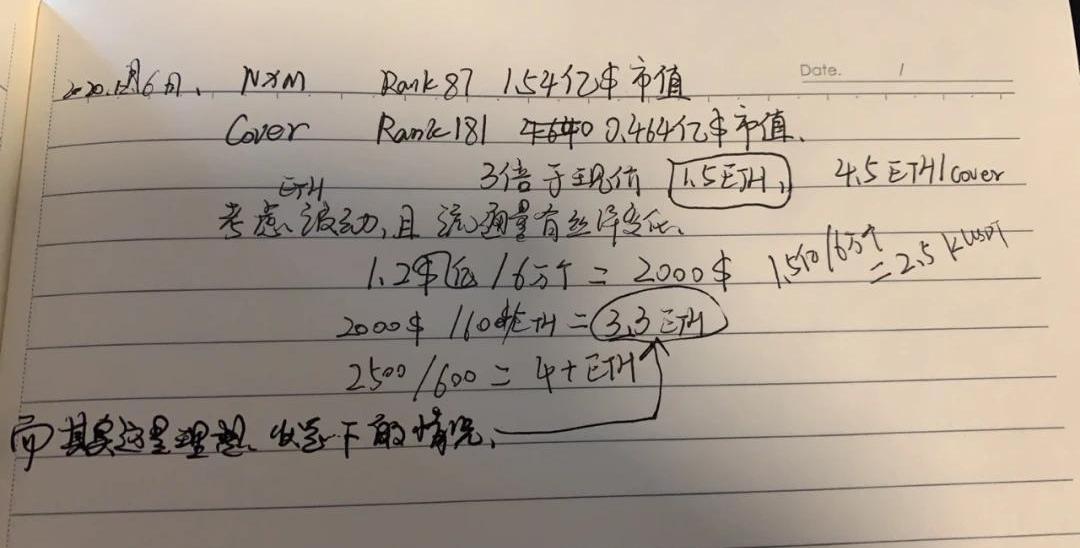 Date. /
2020.12月6日、 NXM Rank 87 1.54亿$ 市值
Cover Rank 181 0.464亿$ 市值、
3倍于现价 1.5ETH, 4.5 ETH/cover
ETH
考虑波动,且 流通量有些许变化、
1.2$亿 / 6万个 = 2000$ 1.5亿/6万个 = 2.5 K USDT
2000$ /600$/ETH = 3.3 ETH
2500 /600 = 4+ ETH
而其实这是理想 状态下的情况、